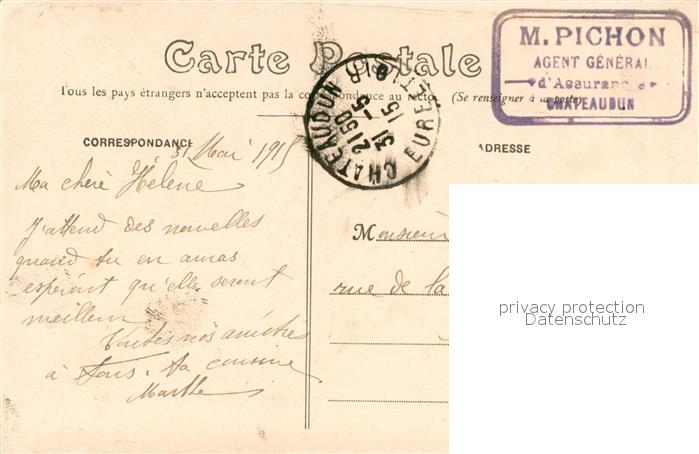 Carte Postale
Tous les pays étrangers n'acceptent pas la correspondance au recto. (Se renseigner à la poste)
M. PICHON
AGENT GÉNÉRAL
d'Assurances
CHATEAUDUN
CHATEAUDUN
EURE ET LOIR
2150
31 -5
15
CORRESPONDANCE
ADRESSE
31 Mai 1915
Ma chère Hélène
J'attend des nouvelles
quand tu en auras
espérant qu'elle seront
meilleur
Toutes nos amitiés
à tous. ta cousine
Marthe
Monsieur
rue de la
privacy protection
Datenschutz